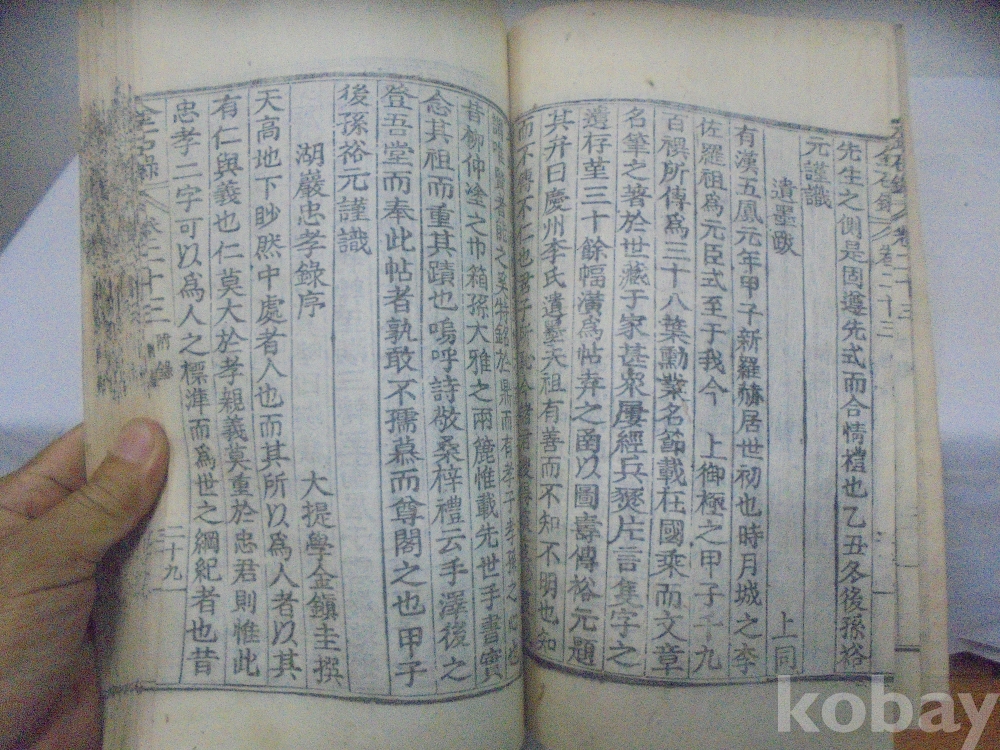 先生之側是固遵先式而合情禮也乙丑冬後孫裕
元謹識
遺墨跋 上同
有漢五鳳元年甲子新羅赫居世初也時月城之李
佐羅祖爲元臣式至于我今 上御極之甲子千九
百禩所傳爲三十八葉勳業名節載在國乘而文章
名筆之著於世藏于家甚衆屢經兵燹片言隻字之
遺存堇三十餘幅潢爲帖弆之凾以圖壽傳裕元題
其弁曰慶州李氏遺墨夫祖有善而不知不明也知
而不傳不仁也君子所
之義特銘於鼎而有孝子孝孫之心也
昔柳仲塗之巾箱孫大雅之兩簏惟載先世手書實
念其祖而重其蹟也嗚呼詩敬桑梓禮云手澤後之
登吾堂而奉此帖者孰敢不孺慕而尊閣之也甲子
後孫裕元謹識
湖巖忠孝錄序 大提學金鎭圭撰
天高地下眇然中處者人也而其所以爲人者以其
有仁與義也仁莫大於孝親義莫重於忠君則惟此
忠孝二字可以爲人之標準而爲世之綱紀者也昔
金石錄 卷二十三 附錄 二十九
kobay